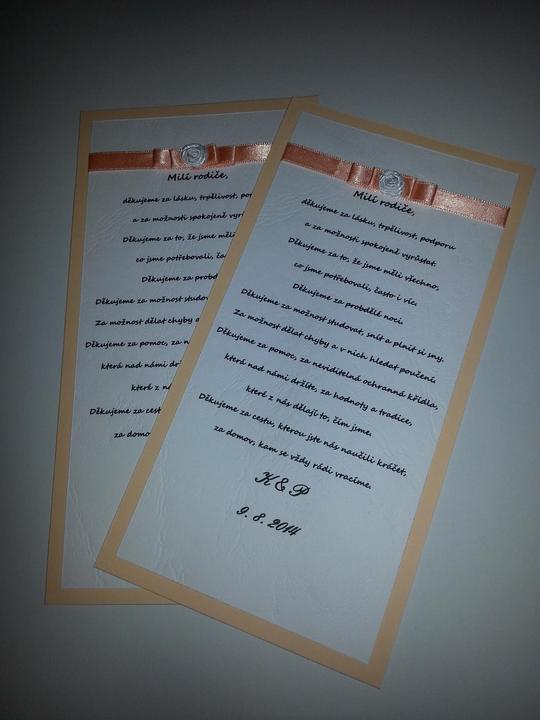 Milí rodiče,
děkujeme za lásku, trpělivost, por
a za možnosti spokojeně vyrů
Děkujeme za to, že jsme měli
co jsme potřebovali, ča
Děkujeme za probd
Děkujeme za možnost studov
Za možnost dělat chyby a
Děkujeme za pomoc, za n
která nad námi drž
které z ná
Děkujeme za cest
za domo
Milí rodiče,
děkujeme za lásku, trpělivost, podporu
a za možnosti spokojeně vyrůstat.
Děkujeme za to, že jsme měli všechno,
co jsme potřebovali, často i víc.
Děkujeme za probdělé noci.
Děkujeme za možnost studovat, snít a plnit si sny.
Za možnost dělat chyby a v nich hledat poučení.
Děkujeme za pomoc, za neviditelná ochranná křídla,
která nad námi držíte, za hodnoty a tradice,
které z nás dělají to, čím jsme.
Děkujeme za cestu, kterou jste nás naučili kráčet,
za domov, kam se vždy rádi vracíme.
K & P
9. 8. 2014